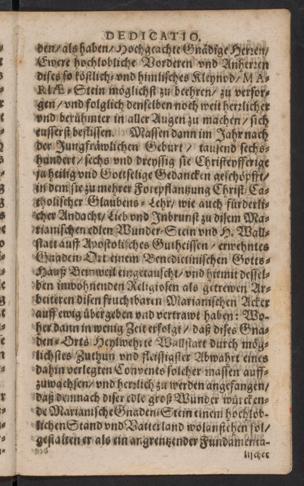 DEDICATIO.
den/ als haben/ Hochgeachte Gnädige Herren/
Ewere hochlobliche Vorderen vnd Anherren
dises so köstlich/ vnd himlisches Kleynod/ MA-
RIÆ-Stein möglichst zu beehren/ zu versor-
gen/ vnd folglich denselben noch weit herrlicher
vnd berühmter in aller Augen zu machen/ sich
eusserst beflissen. Massen dann im Jahr nach
der Jungfräwlichen Geburt/ tausend sechs-
hundert/ sechs vnd dreyssig sie Christeyfferige
ja heilig vnd Gottselige Gedancken geschöpfft/
in dem sie zu mehrer Fortpflantzung Christ. Ca-
tholischer Glaubens-Lehr/ wie auch fürderli-
cher Andacht/ Lieb vnd Inbrunst zu disem Ma-
rianischen edlen Wunder-Stein vnd H. Wall-
statt auß Apostolisches Gutheissen/ erwehntes
Gnaden-Ort einem Benedictinischen Gotts-
Hauß Beinweil eingetauscht/ vnd hiemit dessel-
ben inwohnenden Religiosen als getrewen Ar-
beiteren disen fruchtbaren Marianischen Acker
auff ewig übergeben vnd vertrawt haben: Wo-
her dann in wenig Zeit erfolgt/ daß dises Gna-
den-Orts Heylwehrte Wallstatt durch mög-
lichstes Zuthun vnd fleissigster Abwahrt eines
dahin verlegten Convents solcher massen auff-
zuwachsen/ vnd herrlich zu werden angefangen/
daß demnach diser edle groß Wunder würcken-
de Marianische Gnaden-Stein einem hochlob-
lichen Stand vnd Vatterland wolanstehen sol/
gestalten er als ein angrentzender Fundamenta-
lischer